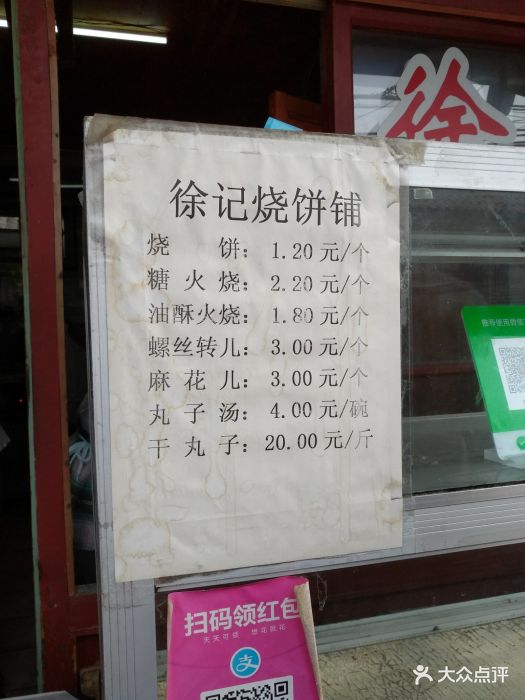 徐
徐记烧饼铺
烧饼：1.20 元/个
糖火烧：2.20 元/个
油酥火烧：1.80 元/个
螺丝转儿：3.00 元/个
麻花儿：3.00 元/个
丸子汤：4.00 元/碗
干丸子：20.00 元/斤
推荐使用微信
扫码领红包
支
大众点评